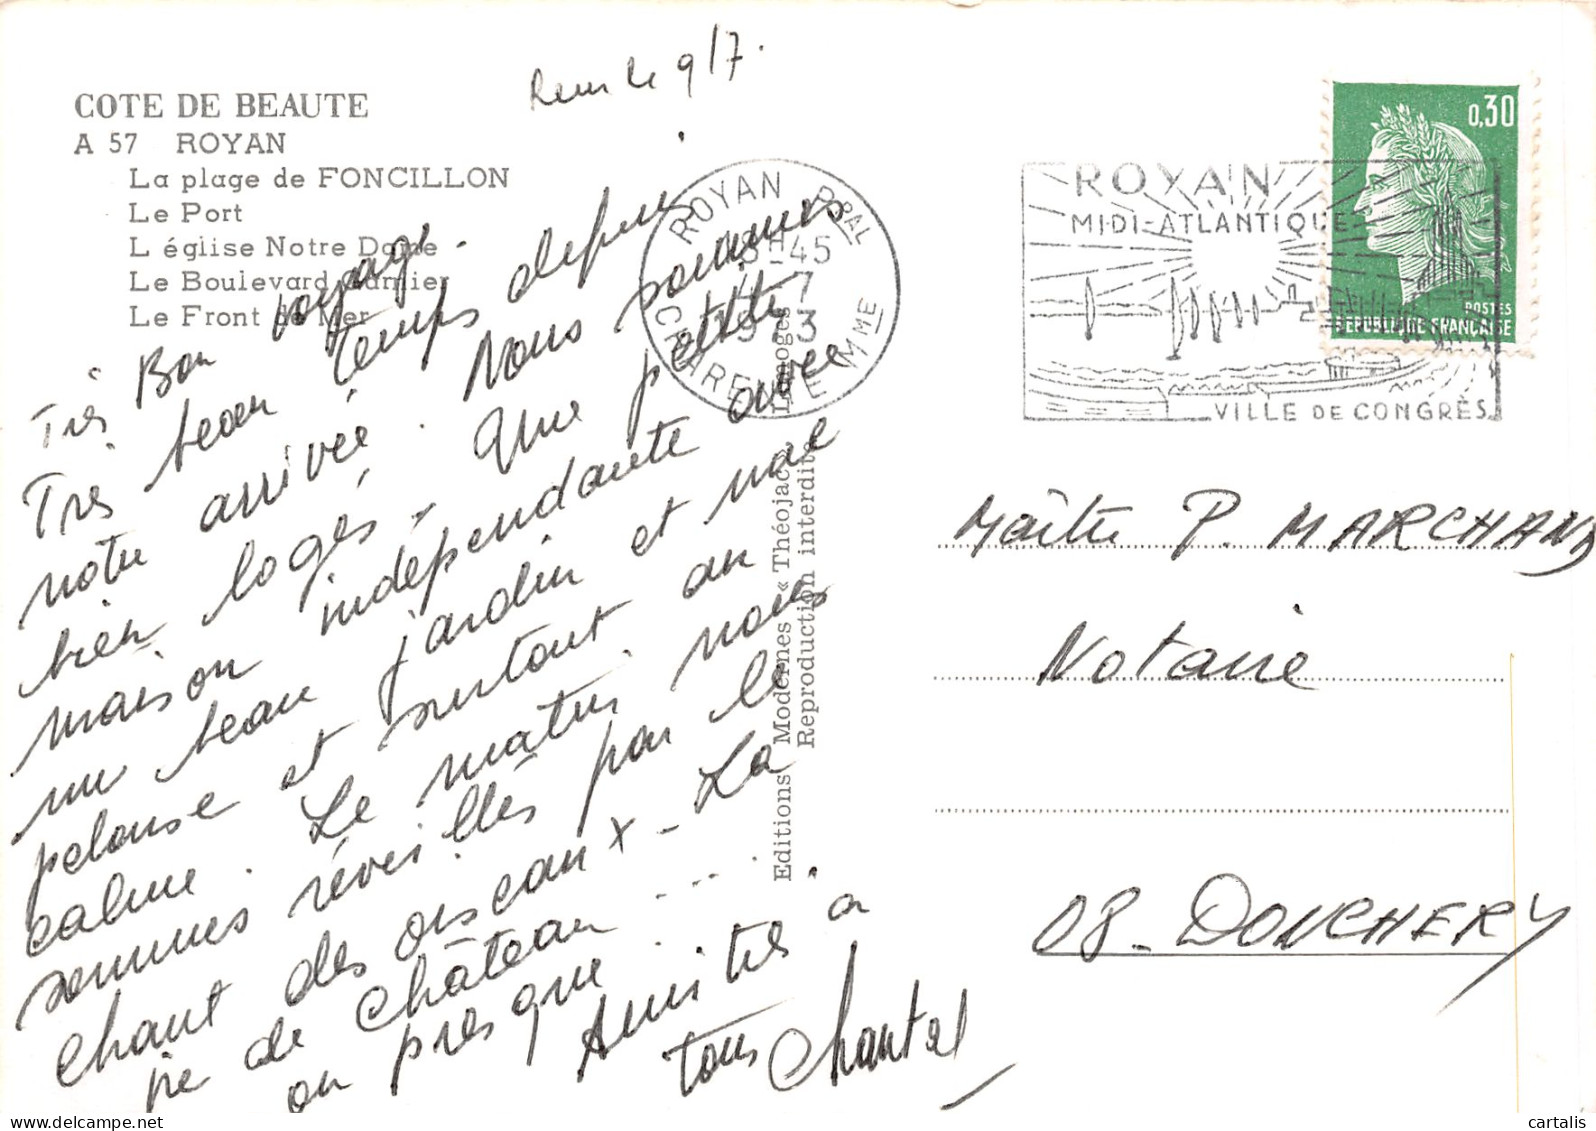 COTE DE BEAUTE
A 57 ROYAN
La plage de FONCILLON
Le Port
L église Notre Dame
Le Boulevard Garnier
Le Front de Mer
le 9/7.
ROYAN PPAL
18H-45
7
1973
CHARENTE MME
ROYAN
MIDI-ATLANTIQUE
VILLE DE CONGRÈS
0,30
POSTES
REPUBLIQUE FRANÇAISE
Très Bon voyage.
Très beau temps depuis
notre arrivée. Nous sommes
bien logés. Une petite
maison indépendante avec
un beau jardin et une
pelouse et surtout au
calme. Le matin nous
sommes réveillés par le
chant des oiseaux - La
vie de château ....
ou presque ...
Amitiés à
tous Chantal
Editions Modernes « Théojac » Limoges
Reproduction interdite
Maître P. MARCHAND
Notaire
08 - DONCHERY
cartalis